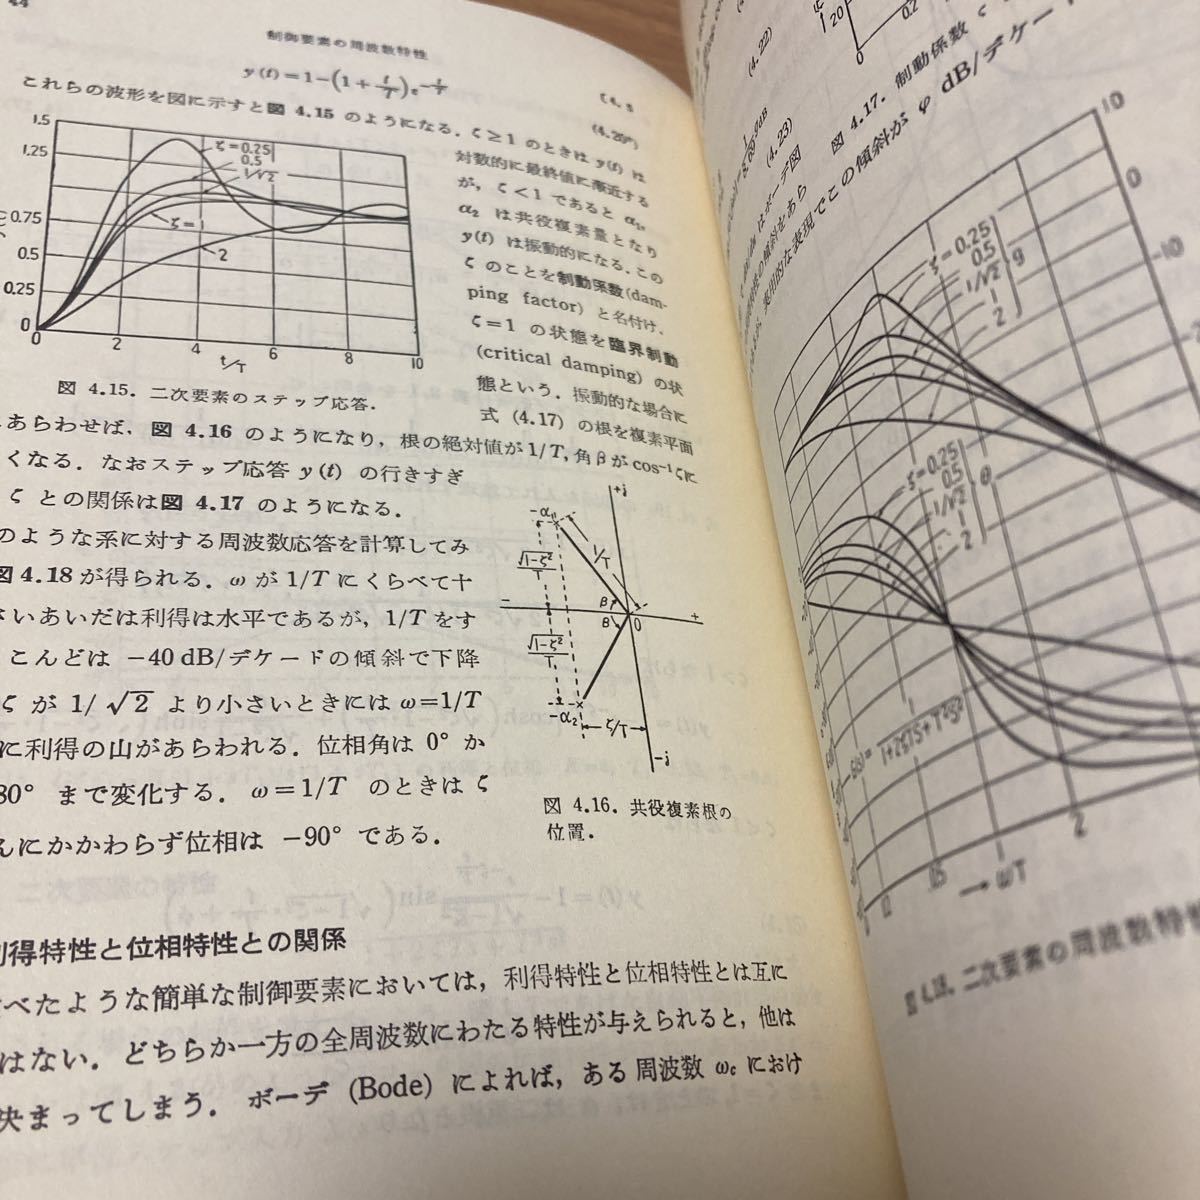 44
制御要素の周波数特性
y(t)=1-(1+t/T)ε^-t/T
これらの波形を図に示すと図 4.15 のようになる. ζ≥1 のときは y(t) は
(4.20″)
対数的に最終値に漸近する
が, ζ<1 であると α₁,
α₂ は共役複素量となり
y(t) は振動的になる. この
ζ のことを制動係数(dam-
ping factor) と名付け,
ζ=1 の状態を臨界制動
(critical damping) の状
態という. 振動的な場合に
式 (4.17) の根を複素平面
1.5
1.25
0.75
0.5
0.25
0
ζ=0.25
0.5
1/√2
ζ=1
2
0 2 4 6 8 10
t/T
図 4.15. 二次要素のステップ応答.
あらわせば, 図 4.16 のようになり, 根の絶対値が 1/T, 角 β が cos⁻¹ζ に
くなる. なおステップ応答 y(t) の行きすぎ
ζ との関係は図 4.17 のようになる.
のような系に対する周波数応答を計算してみ
図 4.18 が得られる. ω が 1/T にくらべて十
さいあいだは利得は水平であるが, 1/T をす
こんどは -40 dB/デケードの傾斜で下降
ζ が 1/√2 より小さいときには ω=1/T
に利得の山があらわれる. 位相角は 0° か
80° まで変化する. ω=1/T のときは ζ
んにかかわらず位相は -90° である.
+j
-α₁
1/T
√1-ζ²/T
β
-
0
+
β
√1-ζ²/T
-α₂
ζ/T
-j
図 4.16. 共役複素根の
位置.
利得特性と位相特性との関係
べたような簡単な制御要素においては, 利得特性と位相特性とは互に
はない. どちらか一方の全周波数にわたる特性が与えられると, 他は
決まってしまう. ボーデ (Bode) によれば, ある周波数 ω_c におけ
(4.22)
(4.23)
20
0.2
図 4.17. 制動係数 ζ
はボーデ図
の傾斜をあら
実用的な表現でこの傾斜が φ dB/デケード
10
0
-10
ζ=0.25
0.5
1/√2
1
2
g
ζ=0.25
0.5
1/√2
1
2
θ
G(s)=1/1+2ζTs+T²s²
0.5
1
2
→ωT
図 4.18. 二次要素の周波数特性